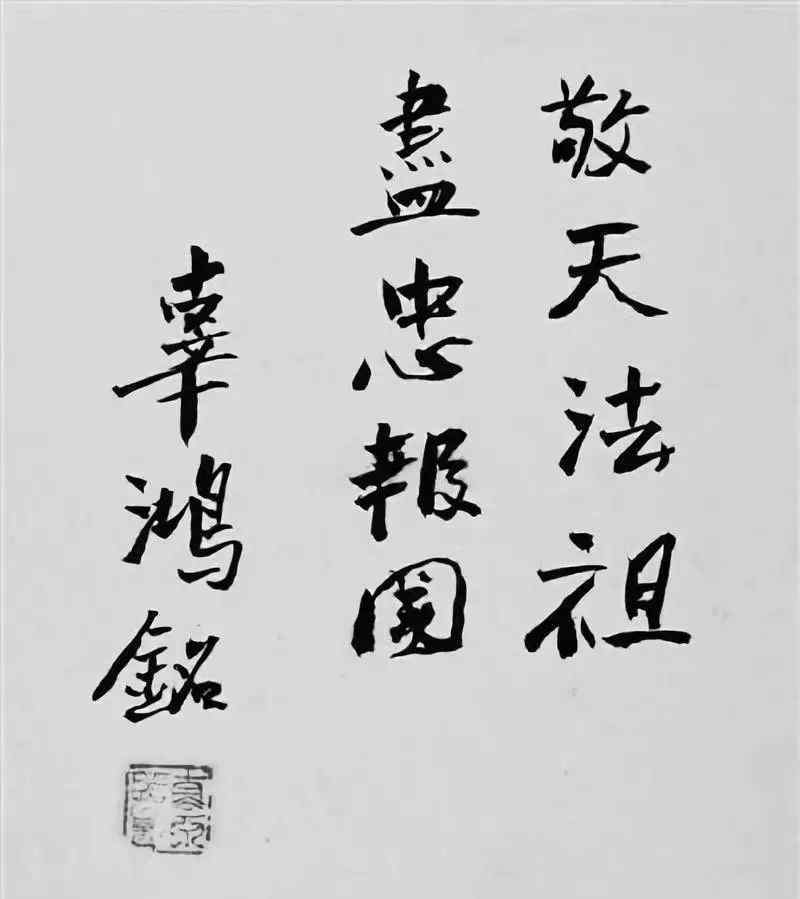 敬天法祖
盡忠報國
辜鴻銘